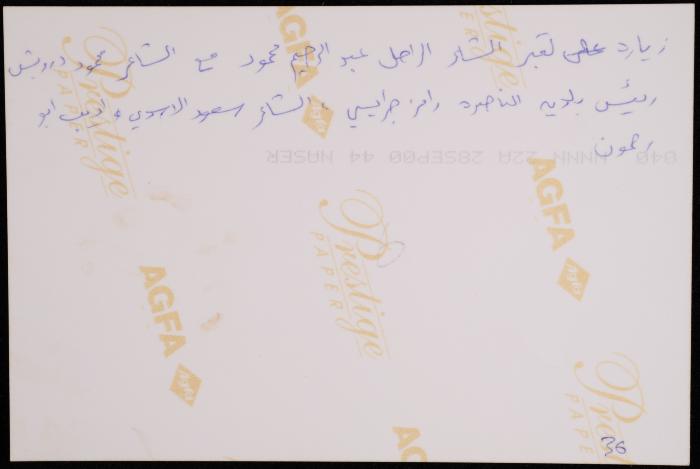 زيارة لقبر الشاعر الراحل عبد الرحيم محمود مع الشاعر محمود درويش
رئيس بلدية الناصرة رامز جرايسي، الشاعر سعود الاسدي، اديب ابو
رحمون
040 NNNN 22A 28SEP00 44 NASER
AGFA
Prestige
PAPER
AGFA
Prestige
PAPER
AGFA
AGFA
Prestige
PAPER
AGFA
36